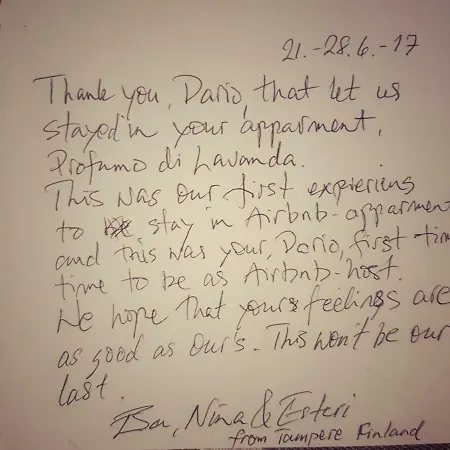 21.-28.6.-17
Thank you, Dario, that let us
stayed in your apparment,
Profumo di Lavanda.
This was our first experiens
to stay in Airbnb-apparment
and this was your, Dario, first tim
time to be as Airbnb-host.
We hope that yours feelings are
as good as our's. This won't be our
last.
Nina & Esteri
from Tampere Finland